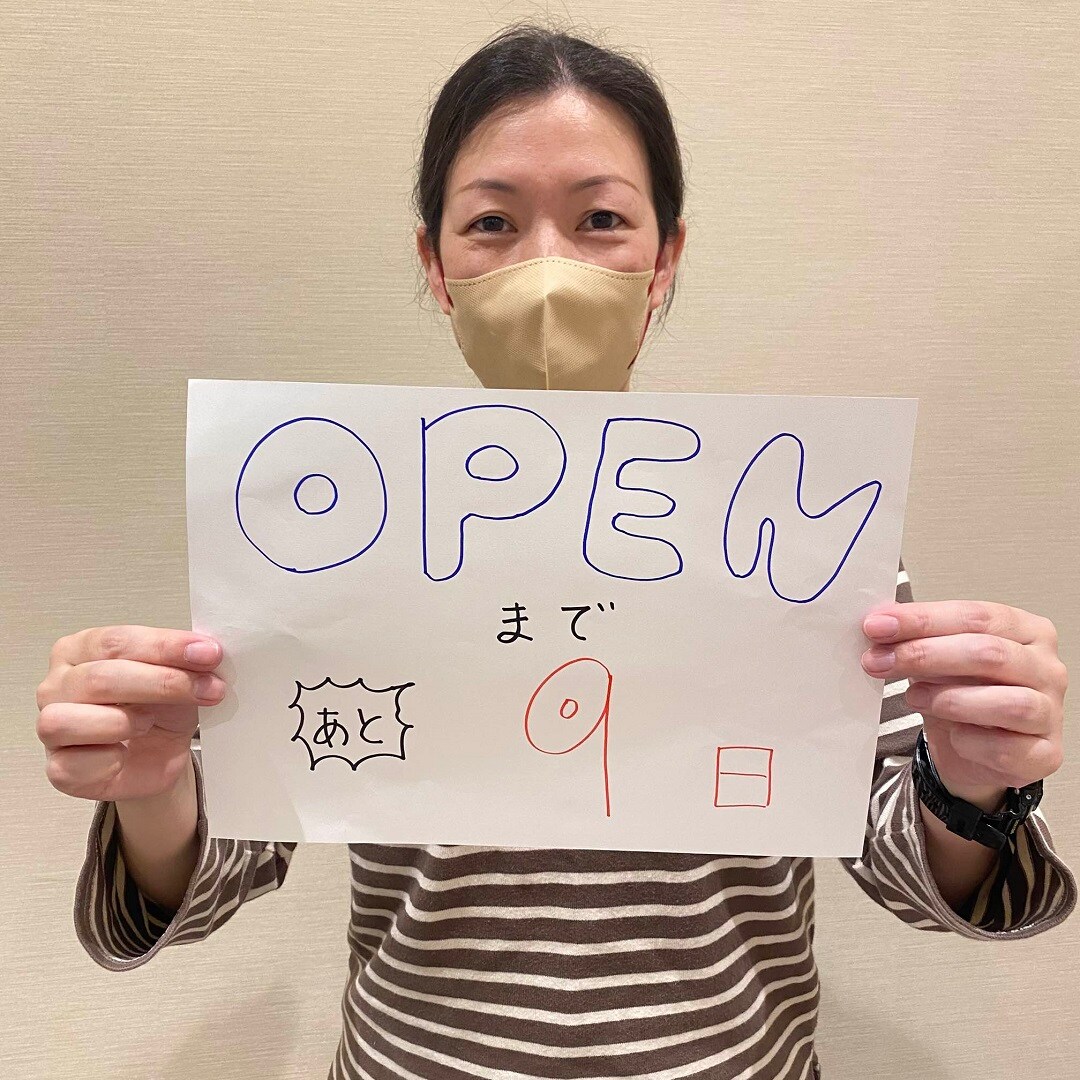 OPEN
まで
あと 9 日